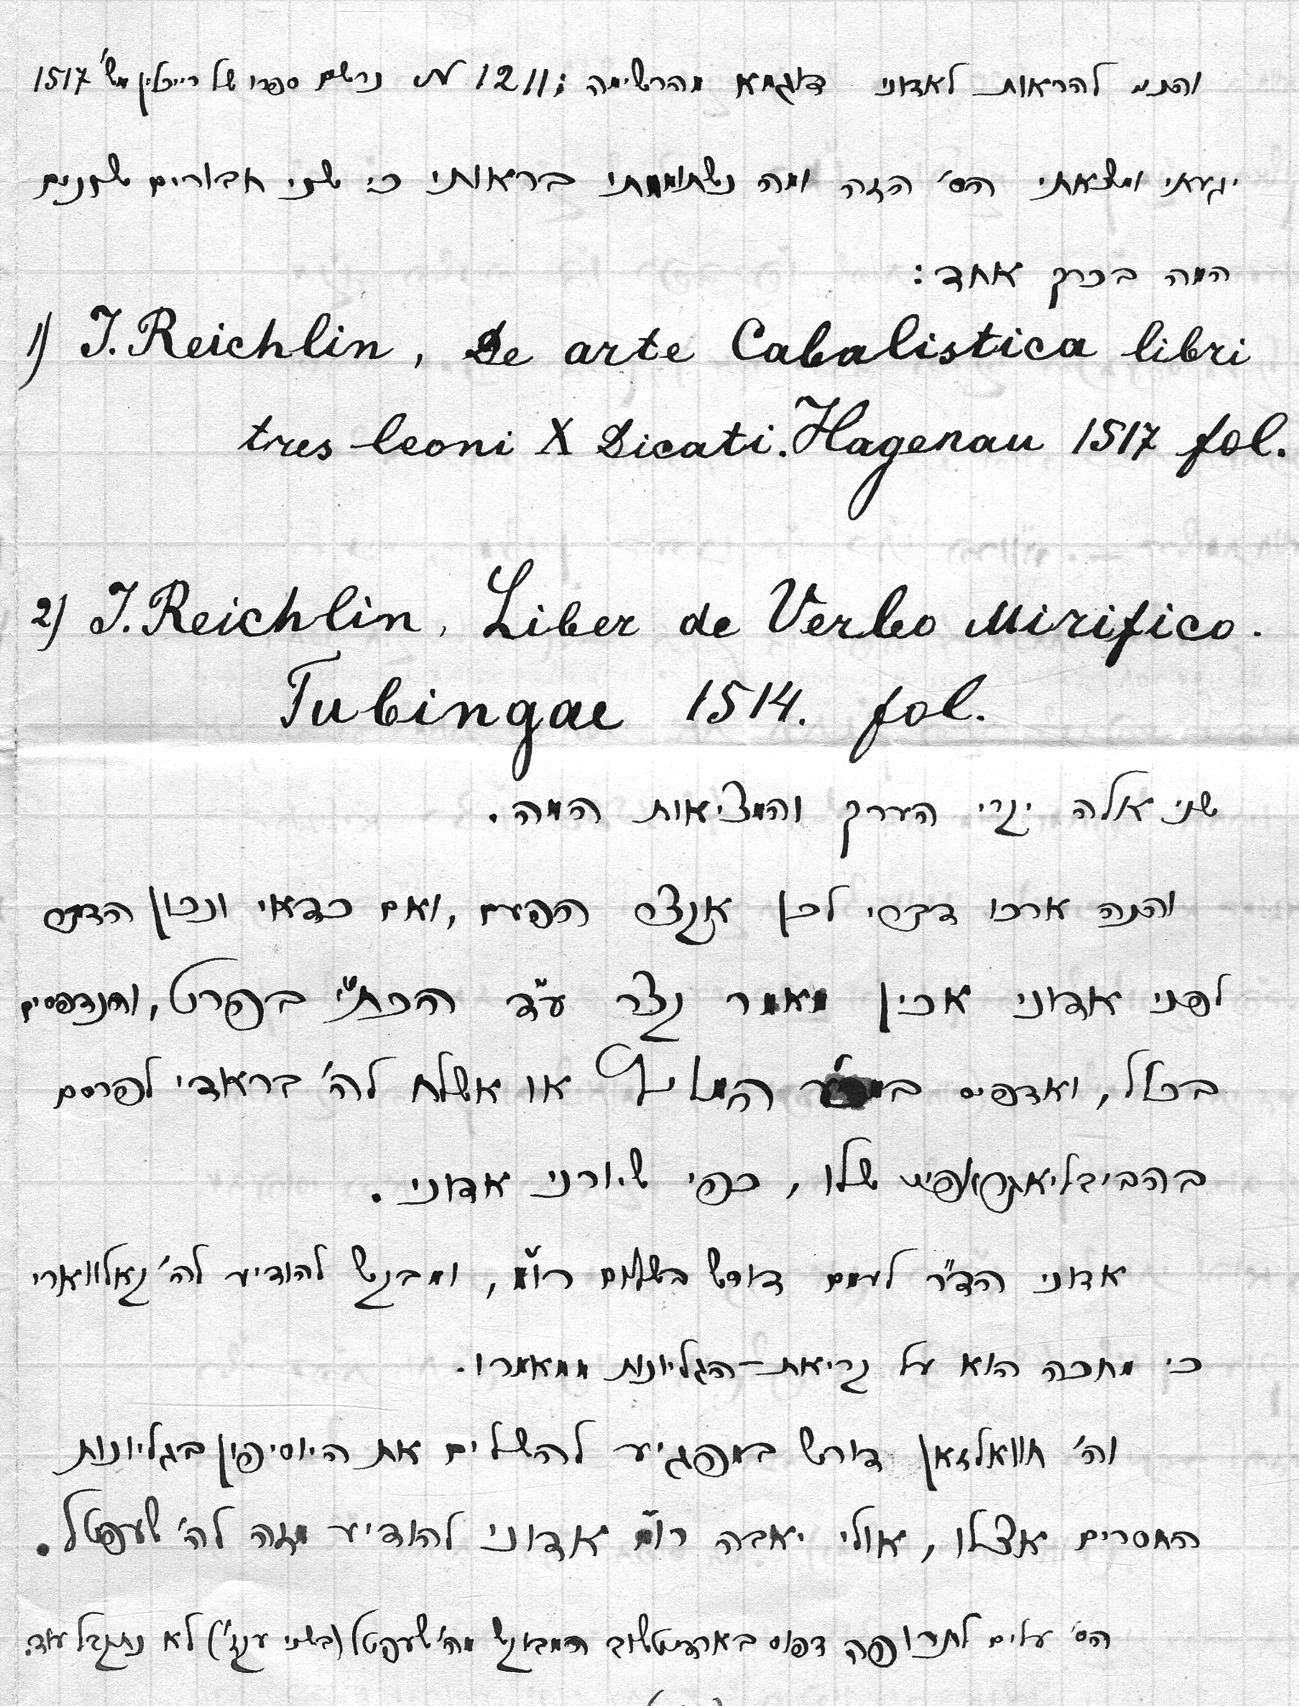 והתי להראות לאדוני דוגמא מהרשימה: 1211 № נרשם ספרו של רייכלין מש' 1517
יגעתי ומצאתי הס' הזה ומה נשתוממתי בראותי כי שני חבורים שונים
המה בכרך אחד:
1) J. Reichlin, De arte Cabalistica libri
tres leoni X Dicati. Hagenau 1517 fol.
2) J. Reichlin, Liber de Verbo Mirifico.
Tubingae 1514. fol.
שני אלה יקרי הערך והמציאות המה.
והנה ארכו דברי לכן אקצר הפעם, ואם כדאי ונכון הדבר
לפני אדוני אכין מאמר קצר ע"ד הכת"י בפרט, והנדפסים
בכלל, ואדפיס המליץ או אשלח לה' בראדי לפרסם
בהביבליאגראפיע שלו, כפי שיורני אדוני.
אדוני הד"ר לעמם דורש בשלום רו"מ, ומבקש להודיע לה' גאלווארי
כי מחכה הוא על קריאת-הגליונות ממאמרו.
וה' חוואלזאן דורש במפגיע להשלים את היוסיפון בגליונות
החסרים אצלו, אולי יאבה רו"מ אדוני להודיע מזה לה' שעפטל.
הס' עלים לתרופה דפוס המבוקש מה' שעפטל (בשני עקז') לא נתקבל עוד.